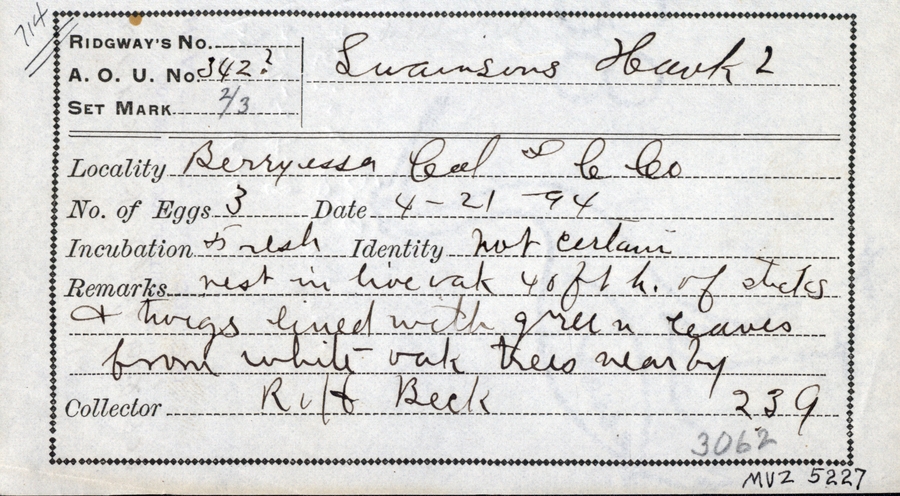 714
RIDGWAY'S NO.
A. O. U. NO. 342? Swainsons Hawk ?
SET MARK 2/3
Locality Berryessa Cal S C Co
No. of Eggs 3 Date 4-21-94
Incubation Fresh Identity not certain
Remarks nest in live oak 40 ft h. of sticks
& twigs lined with green leaves
from white oak trees nearby
Collector R H Beck 239
3062
MVZ 5227